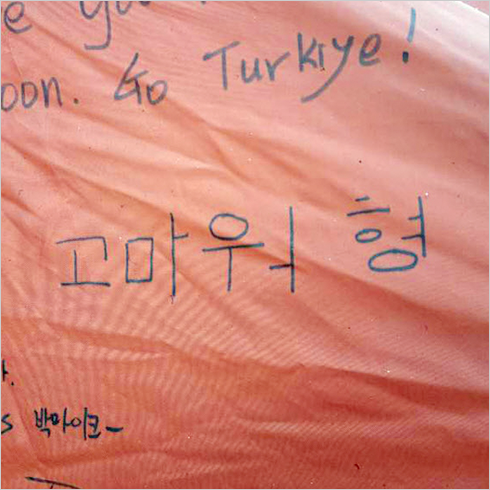 e you
oon. Go Turkiye!
고마워 형
s 박마이크~